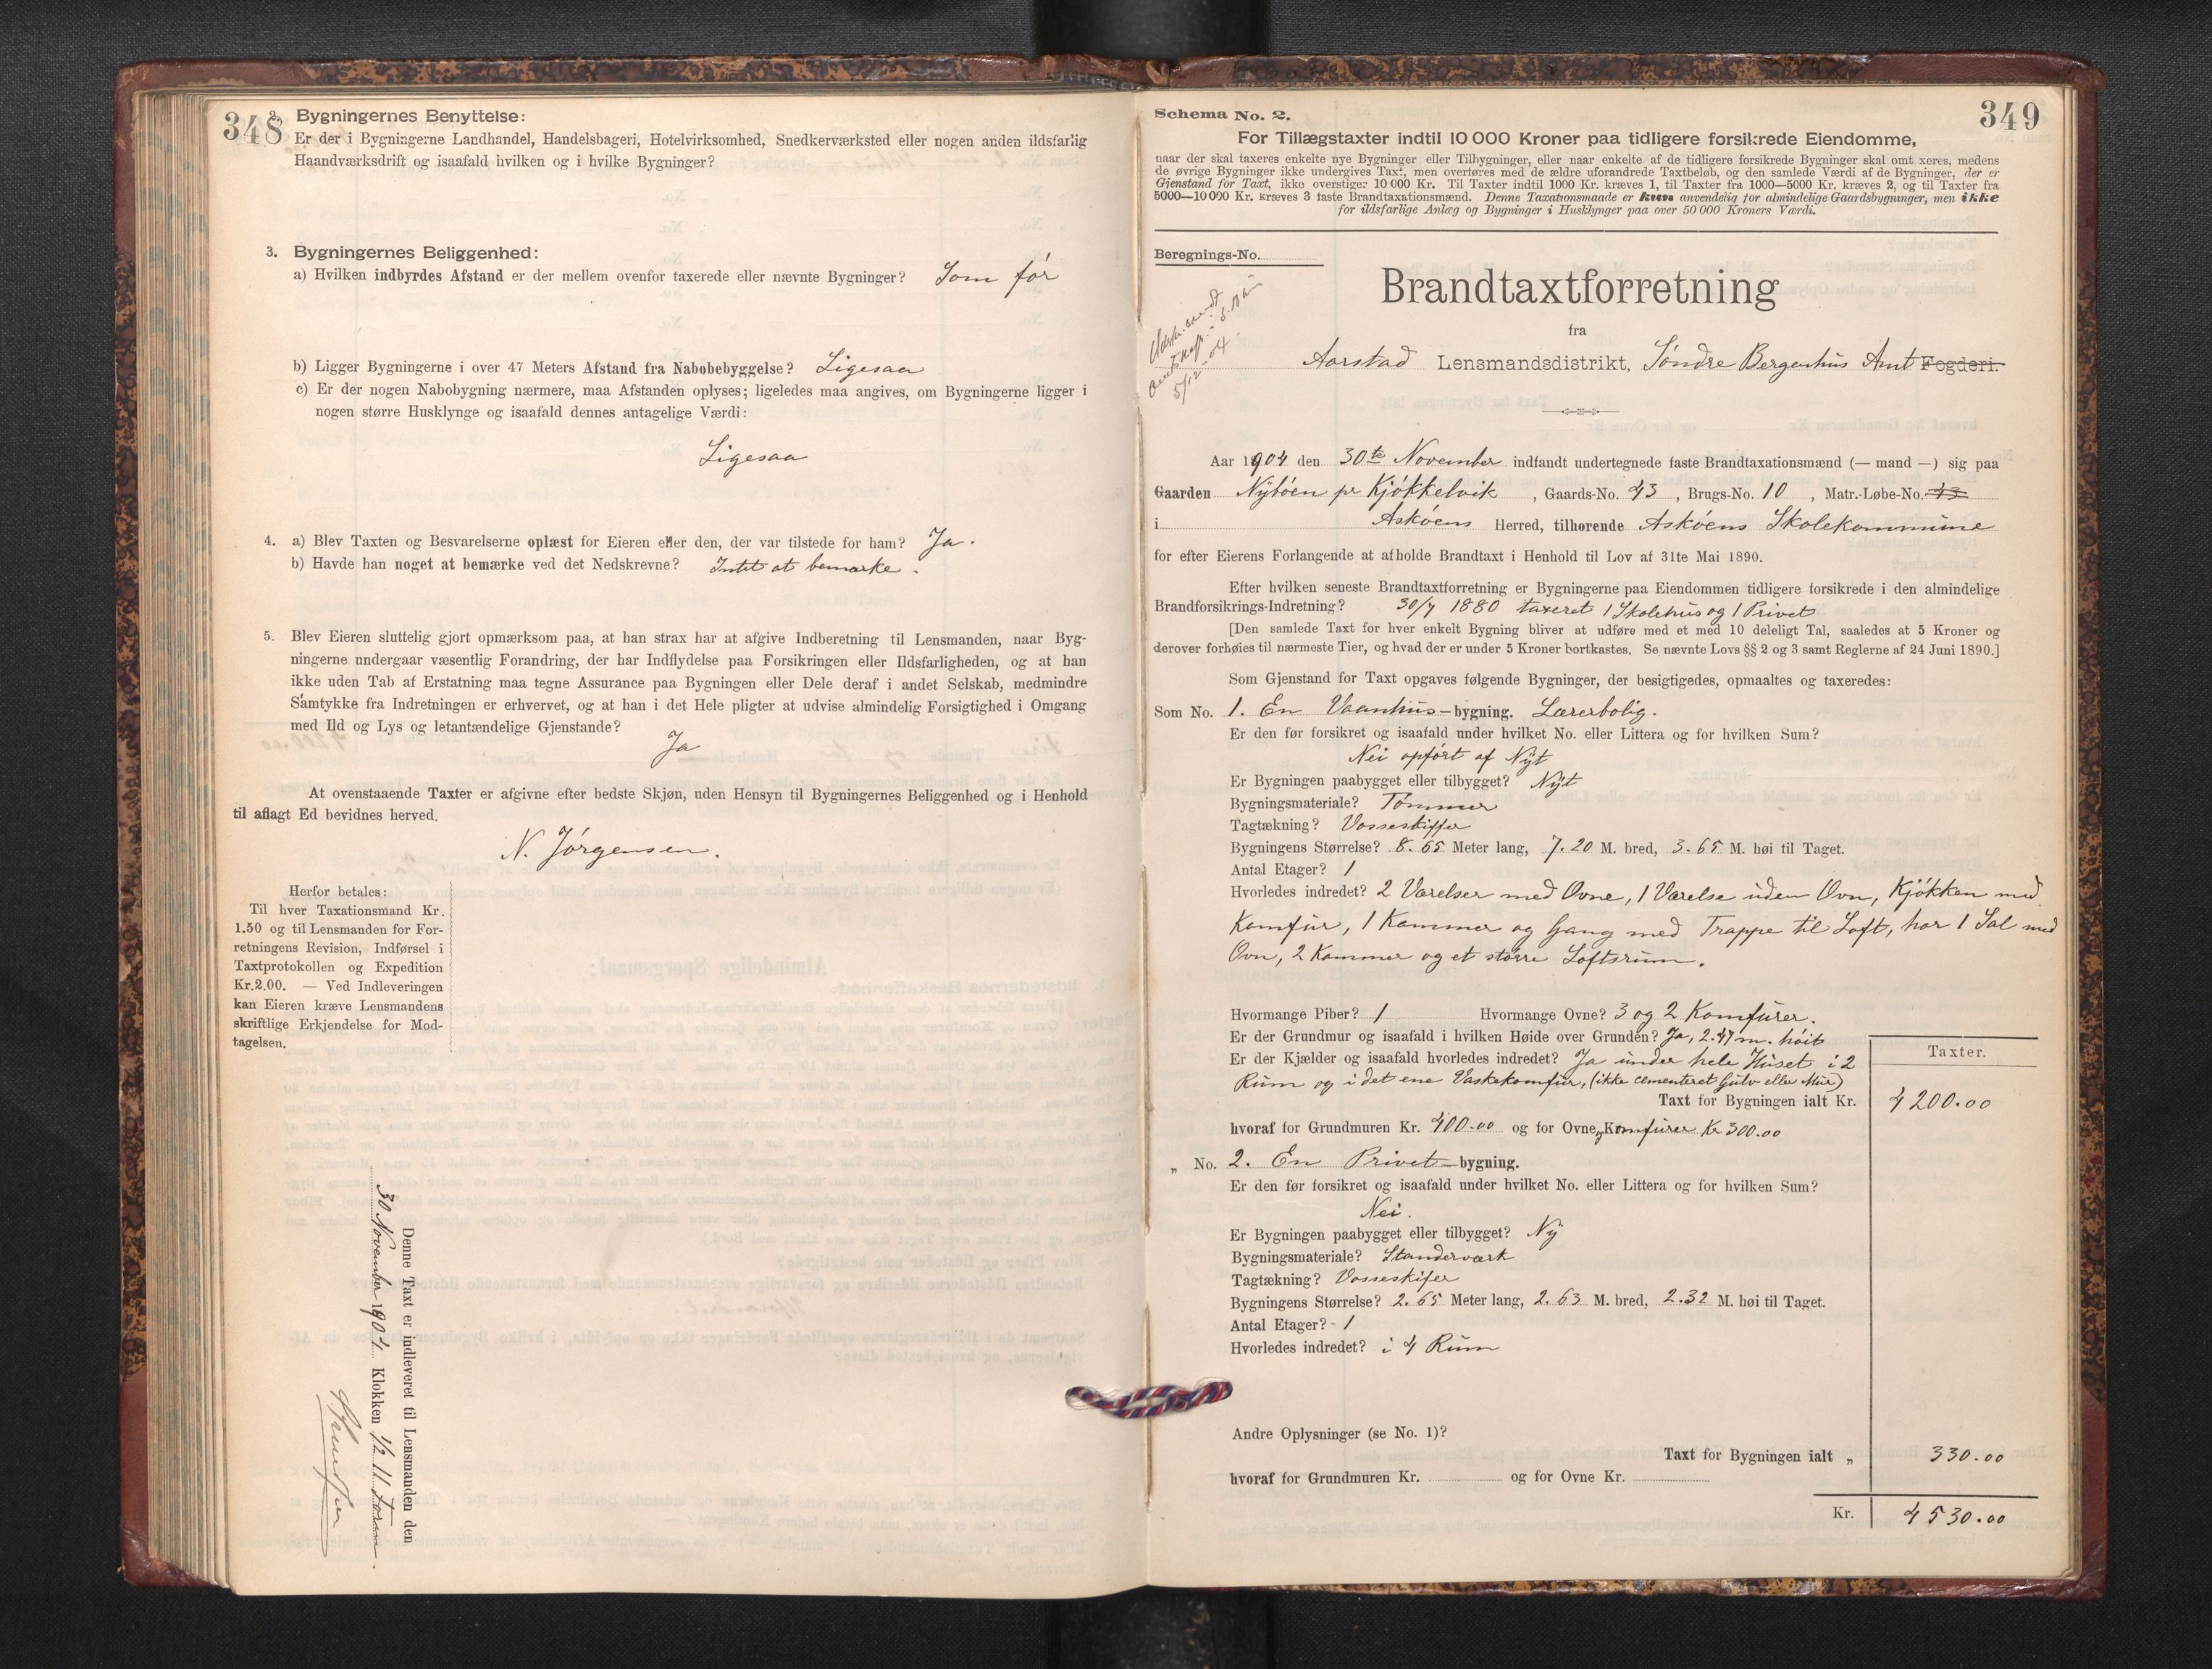 348
2. Bygningernes Benyttelse:
Er der i Bygningerne Landhandel, Handelsbageri, Hotelvirksomhed, Snedkerværksted eller nogen anden ildsfarlig
Haandværksdrift og isaafald hvilken og i hvilke Bygninger?
3. Bygningernes Beliggenhed:
a) Hvilken indbyrdes Afstand er der mellem ovenfor taxerede eller nævnte Bygninger? Som før
b) Ligger Bygningerne i over 47 Meters Afstand fra Nabobebyggelse? Ligesaa
c) Er der nogen Nabobygning nærmere, maa Afstanden oplyses; ligeledes maa angives, om Bygningerne ligger i
nogen større Husklynge og isaafald dennes antagelige Værdi:
Ligesaa
4. a) Blev Taxten og Besvarelserne oplæst for Eieren eller den, der var tilstede for ham? Ja.
b) Havde han noget at bemærke ved det Nedskrevne? Intet at bemærke.
5. Blev Eieren sluttelig gjort opmærksom paa, at han strax har at afgive Indberetning til Lensmanden, naar Byg-
ningerne undergaar væsentlig Forandring, der har Indflydelse paa Forsikringen eller Ildsfarligheden, og at han
ikke uden Tab af Erstatning maa tegne Assurance paa Bygningen eller Dele deraf i andet Selskab, medmindre
Samtykke fra Indretningen er erhvervet, og at han i det Hele pligter at udvise almindelig Forsigtighed i Omgang
med Ild og Lys og letantændelige Gjenstande?
Ja
At ovenstaaende Taxter er afgivne efter bedste Skjøn, uden Hensyn til Bygningernes Beliggenhed og i Henhold
til aflagt Ed bevidnes herved.
N. Jørgensen.
Herfor betales:
Til hver Taxationsmand Kr.
1.50 og til Lensmanden for For-
retningens Revision, Indførsel i
Taxtprotokollen og Expedition
Kr.2.00. — Ved Indleveringen
kan Eieren kræve Lensmandens
skriftlige Erkjendelse for Mod-
tagelsen.
Denne Taxt er indleveret til Lensmanden den
30 November 1904 Klokken 1/2 11 form.
349
Schema No. 2.
For Tillægstaxter indtil 10 000 Kroner paa tidligere forsikrede Eiendomme,
naar der skal taxeres enkelte nye Bygninger eller Tilbygninger, eller naar enkelte af de tidligere forsikrede Bygninger skal omt xeres, medens
de øvrige Bygninger ikke undergives Taxt, men overføres med de ældre uforandrede Taxtbeløb, og den samlede Værdi af de Bygninger, der er
Gjenstand for Taxt, ikke overstiger 10 000 Kr. Til Taxter indtil 1000 Kr. kræves 1, til Taxter fra 1000—5000 Kr. kræves 2, og til Taxter fra
5000—10 000 Kr. kræves 3 faste Brandtaxationsmænd. Denne Taxationsmaade er kun anvendelig for almindelige Gaardsbygninger, men ikke
for ildsfarlige Anlæg og Bygninger i Husklynger paa over 50 000 Kroners Værdi.
Beregnings-No.
5/12 04.
Brandtaxtforretning
fra
Aarstad Lensmandsdistrikt, Søndre Bergenhus Amt Fogderi.
Aar 1904 den 30te November indfandt undertegnede faste Brandtaxationsmænd (— mand —) sig paa
Gaarden Nybøen pr Kjøkkelvik, Gaards-No. 43, Brugs-No. 10, Matr.-Løbe-No. 43
i Askøens Herred, tilhørende Askøens Skolekommune
for efter Eierens Forlangende at afholde Brandtaxt i Henhold til Lov af 31te Mai 1890.
Efter hvilken seneste Brandtaxtforretning er Bygningerne paa Eiendommen tidligere forsikrede i den almindelige
Brandforsikrings-Indretning? 30/7 1880 taxeret 1 Skolehus og 1 Privet
[Den samlede Taxt for hver enkelt Bygning bliver at udføre med et med 10 deleligt Tal, saaledes at 5 Kroner og
derover forhøies til nærmeste Tier, og hvad der er under 5 Kroner bortkastes. Se nævnte Lovs §§ 2 og 3 samt Reglerne af 24 Juni 1890.]
Som Gjenstand for Taxt opgaves følgende Bygninger, der besigtigedes, opmaaltes og taxeredes:
Som No. 1. En Vaanhus-bygning. Lærerbolig.
Er den før forsikret og isaafald under hvilket No. eller Littera og for hvilken Sum?
Nei opført af Nyt
Er Bygningen paabygget eller tilbygget? Nyt
Bygningsmateriale? Tømmer
Tagtækning? Vosseskiffer
Bygningens Størrelse? 8.65 Meter lang, 7.20 M. bred, 3.65 M. høi til Taget.
Antal Etager? 1
Hvorledes indredet? 2 Værelser med Ovne, 1 Værelse uden Ovn, Kjøkken med
Komfur, 1 Kammer og Gang med Trappe til Loft, har 1 Sal med
Ovn, 2 Kammer og et større Loftsrum.
Hvormange Piber? 1 Hvormange Ovne? 3 og 2 Komfurer.
Er der Grundmur og isaafald i hvilken Høide over Grunden? Ja, 2.47 m. høit
Er der Kjælder og isaafald hvorledes indredet? Ja under hele Huset i 2
Rum og i det ene Vaskekomfur, (ikke cementeret Gulv eller Mur)
Taxter.
Taxt for Bygningen ialt Kr. 4200.00
hvoraf for Grundmuren Kr. 400.00 og for Ovne og Komfurer Kr 300.00
„ No. 2. En Privet-bygning.
Er den før forsikret og isaafald under hvilket No. eller Littera og for hvilken Sum?
Nei.
Er Bygningen paabygget eller tilbygget? Ny
Bygningsmateriale? Standerværk
Tagtækning? Vosseskifer
Bygningens Størrelse? 2.65 Meter lang, 2.63 M. bred, 2.32 M. høi til Taget.
Antal Etager? 1
Hvorledes indredet? i 4 Rum
Andre Oplysninger (se No. 1)?
Taxt for Bygningen ialt „ 330.00
hvoraf for Grundmuren Kr. og for Ovne Kr.
Kr. 4530.00